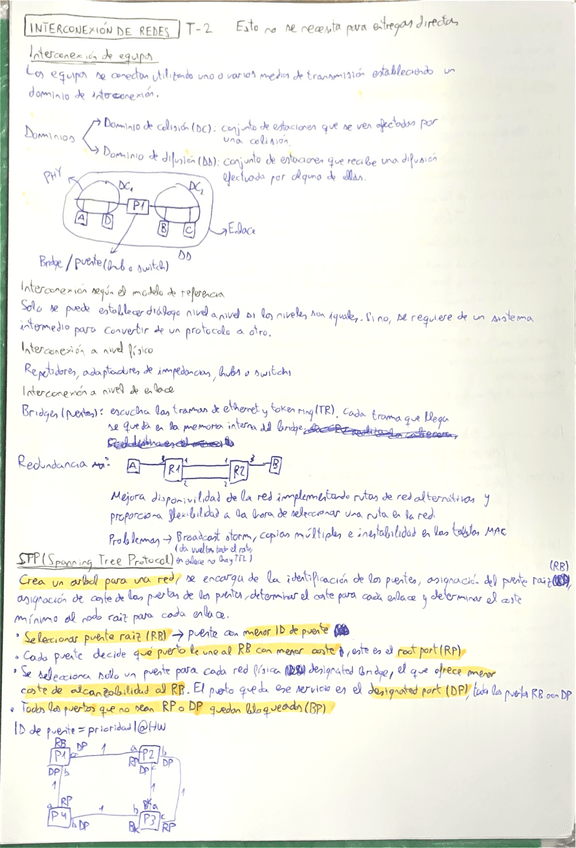 INTERCONEXIÓN DE REDES T-2 Esto no se necesita para entregas directas
Interconexión de equipos
Los equipos se conectan utilizando uno o varios medios de transmisión estableciendo un
dominio de interconexión.
Dominios
Dominio de colisión (DC): conjunto de estaciones que se ven afectadas por
una colisión.
Dominio de difusión (DD): conjunto de estaciones que recibe una difusión
efectuada por alguna de ellas.
PHY DC1 DC2
P1
A D B C
Enlace
DD
Bridge / puente (hub o switch)
Interconexión según el modelo de referencia
Solo se puede establecer diálogo nivel a nivel si los niveles son iguales. Si no, se requiere de un sistema
intermedio para convertir de un protocolo a otro.
Interconexión a nivel físico
Repetidores, adaptadores de impedancias, hubs o switchs
Interconexión a nivel de enlace
Bridges (puentes): escucha las tramas de ethernet y token ring (TR). Cada trama que llega
se queda en la memoria interna del bridge,
Redundancia
A R1 R2 B
Mejora disponivilidad de la red immplementando rutas de red alternativas y
proporciona flexibilidad a la hora de seleccionar una ruta en la red.
Problemas → Broadcast storm, copias múltiples e inestabilidad en las tablas MAC
STP (Spanning Tree Protocol)
(RB)
Crea un arbol para una red, se encarga de la identificación de los puentes, asignación del puente raiz
asignación de coste de los puertos de los puentes, determinar el coste para cada enlace y determinar el coste
mínimo al nodo raiz para cada enlace.
• Seleccionar puente raiz (RB) → puente con menor ID de puente
• Cada puente decide qué puerto le une al RB con menor coste, este es el root port (RP)
• Se selecciona solo un puente para cada red física designated bridge, el que ofrece menor
coste de alcanzabilidad al RP. El puerto que da ese servicio es el designated port (DP), todos los puertos RB son DP
• Todos los puertos que no sean RP o DP quedan bloqueados (BP)
ID de puente = prioridad | @HW
RB
P1 a DP 1 a P2 b DP
DP b RP DP c
1 1 1
a RP Bk a
P4 b DP 1 b Bk P3 c RP